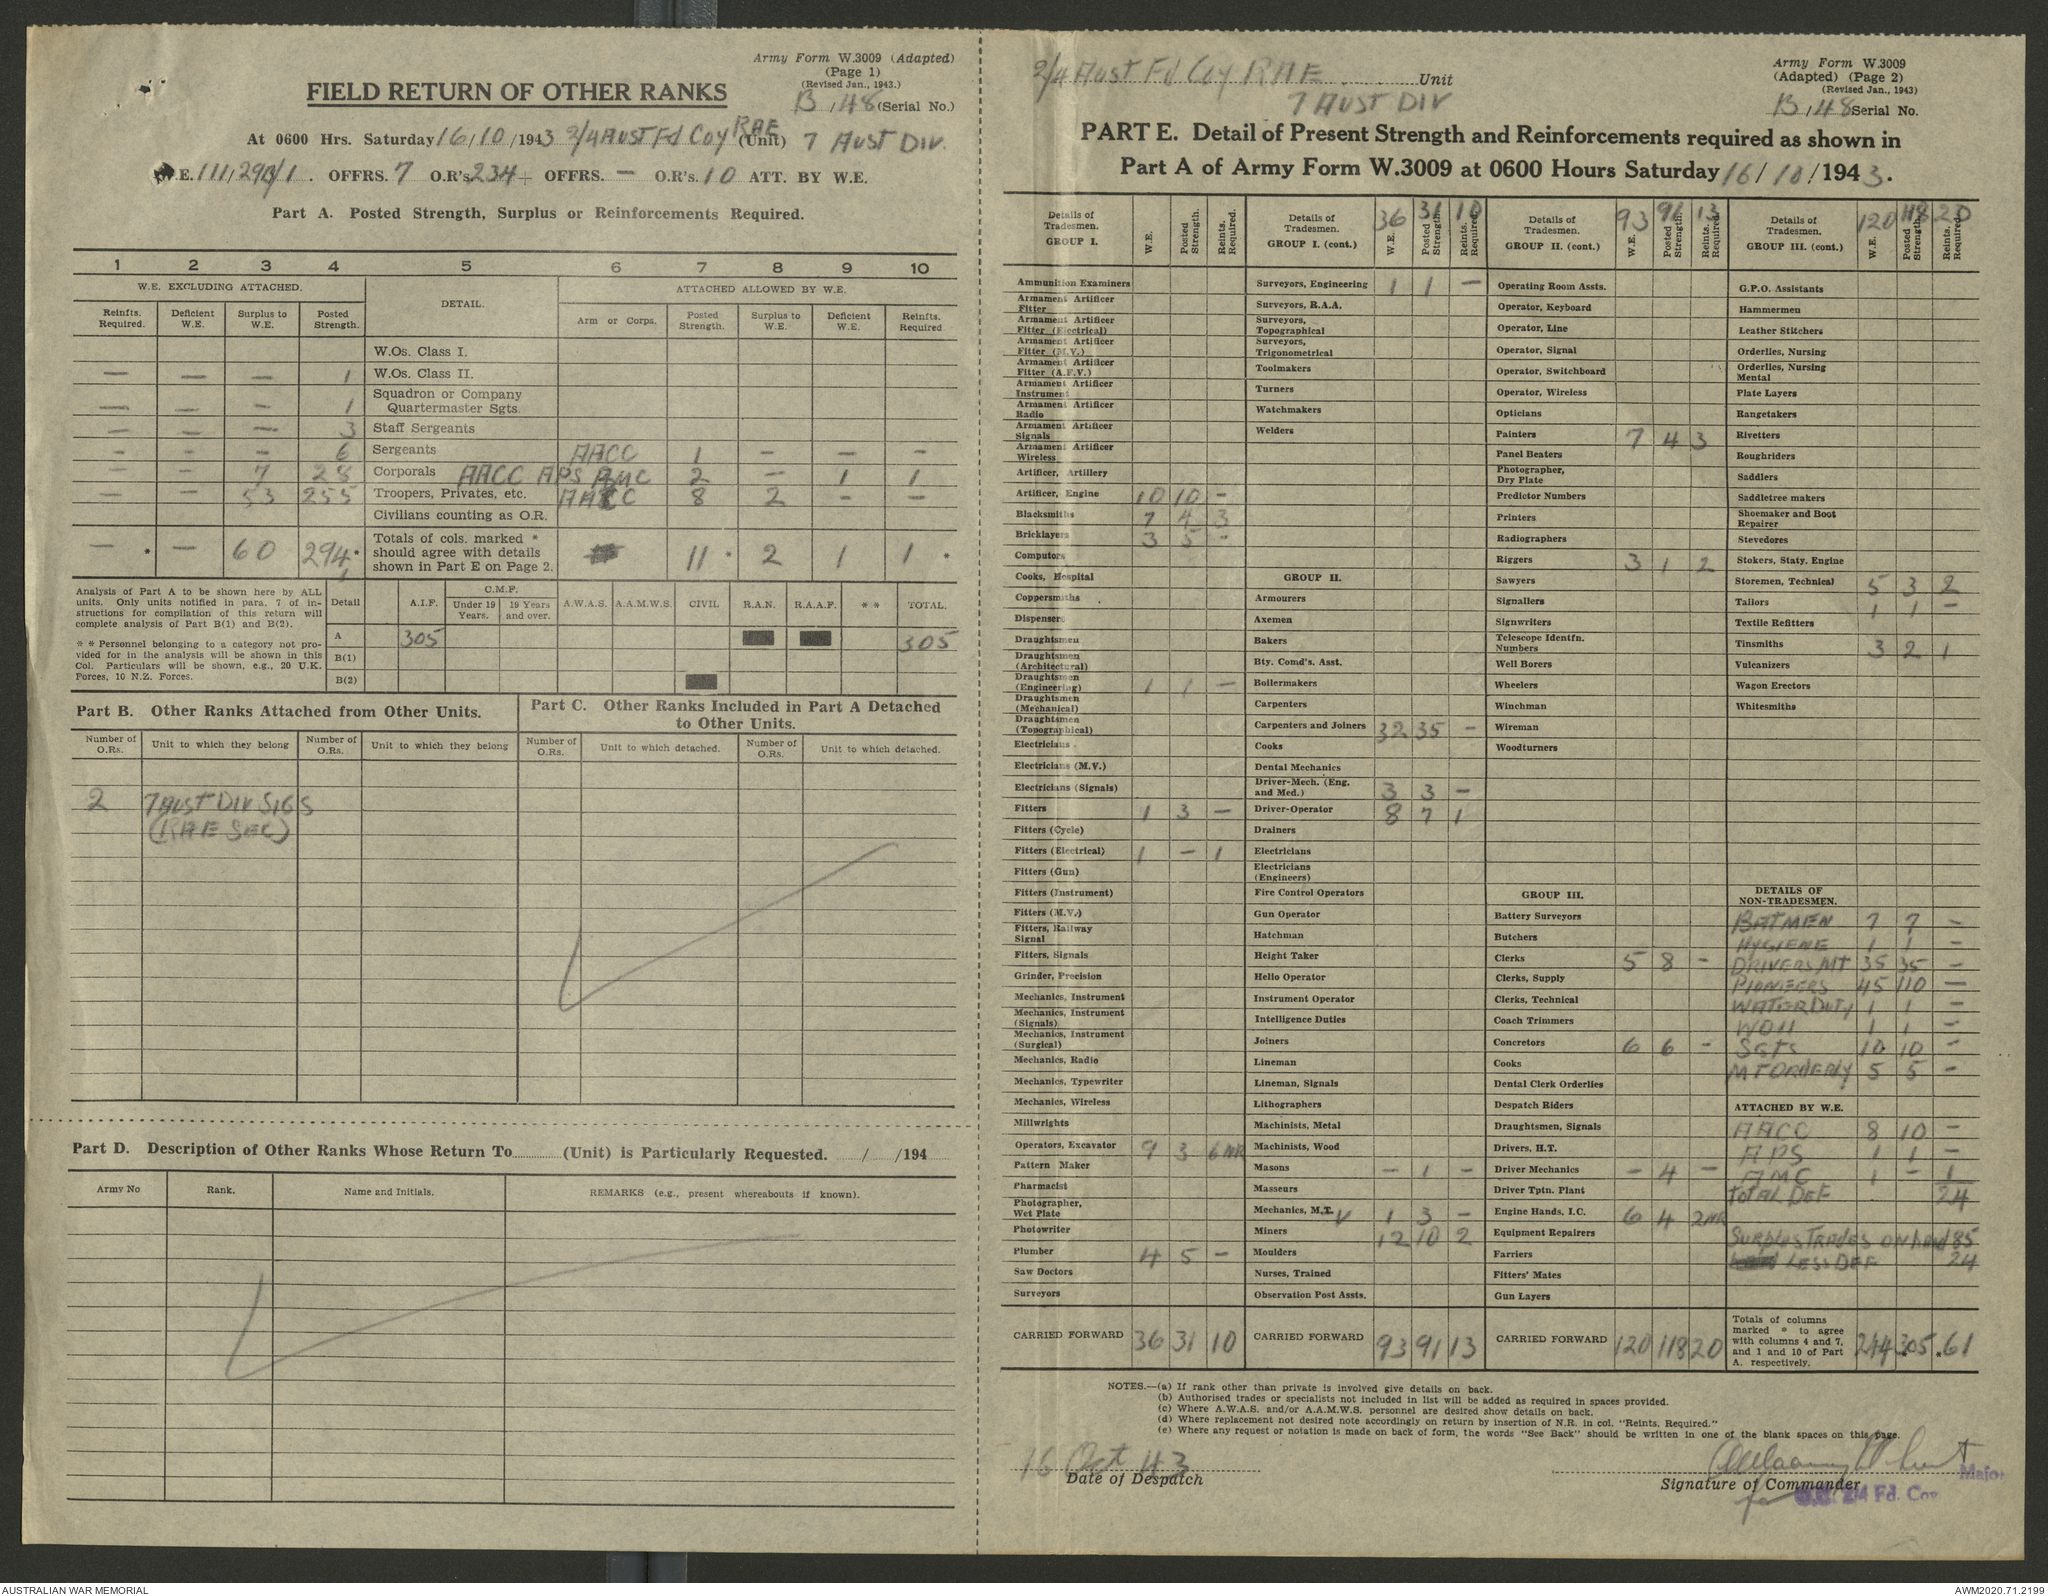 Army Form W.3009 (Adapted)
(Page 1)
(Revised Jan., 1943.)
FIELD RETURN OF OTHER RANKS
B / 48 (Serial No.)
At 0600 Hrs. Saturday 16/10/1943 2/4 AUST Fd Coy RAE (Unit) 7 AUST DIV.
W.E. OFFRS. 7 O.R's 234 + OFFRS. — O.R's. 10 ATT. BY W.E.
Part A. Posted Strength, Surplus or Reinforcements Required.
1 2 3 4 5 6 7 8 9 10
W.E. EXCLUDING ATTACHED. DETAIL. ATTACHED ALLOWED BY W.E.
Reinfts. Required. Deficient W.E. Surplus to W.E. Posted Strength. Arm or Corps. Posted Strength. Surplus to W.E. Deficient W.E. Reinfts. Required
W.Os. Class I.
— — — 1 W.Os. Class II.
— — — 1 Squadron or Company Quartermaster Sgts.
— — — 3 Staff Sergeants
— — — 6 Sergeants AACC 1 — — —
— — 7 28 Corporals AACC APS AMC 2 — 1 1
— — 53 255 Troopers, Privates, etc. AACC 8 2 — —
Civilians counting as O.R.
— * — 60 294 * Totals of cols. marked * should agree with details shown in Part E on Page 2. 11 * 2 1 1 *
Analysis of Part A to be shown here by ALL
units. Only units notified in para. 7 of in-
structions for compilation of this return will
complete analysis of Part B(1) and B(2).
* * Personnel belonging to a category not pro-
vided for in the analysis will be shown in this
Col. Particulars will be shown, e.g., 20 U.K.
Forces, 10 N.Z. Forces.
Detail A.I.F. C.M.F. Under 19 Years. 19 Years and over. A.W.A.S. A.A.M.W.S. CIVIL R.A.N. R.A.A.F. * * TOTAL.
A 305 305
B(1)
B(2)
Part B. Other Ranks Attached from Other Units.
Number of O.Rs. Unit to which they belong Number of O.Rs. Unit to which they belong
2 7 AUST DIV SIGS
(RAE SEC)
Part C. Other Ranks Included in Part A Detached
to Other Units.
Number of O.Rs. Unit to which detached. Number of O.Rs. Unit to which detached.
Part D. Description of Other Ranks Whose Return To............(Unit) is Particularly Requested. ....../....../194......
Army No Rank. Name and Initials. REMARKS (e.g., present whereabouts if known).
2/4 AUST Fd Coy RAE Unit
7 AUST DIV
Army Form W.3009
(Adapted) (Page 2)
(Revised Jan., 1943)
B / 48 Serial No.
PART E. Detail of Present Strength and Reinforcements required as shown in
Part A of Army Form W.3009 at 0600 Hours Saturday 16/10/1943.
Details of Tradesmen. GROUP I. W.E. Posted Strength. Reints. Required.
Ammunition Examiners
Armament Artificer Fitter
Armament Artificer Fitter (Electrical)
Armament Artificer Fitter (M.V.)
Armament Artificer Fitter (A.F.V.)
Armament Artificer Instrument
Armament Artificer Radio
Armament Artificer Signals
Armament Artificer Wireless
Artificer, Artillery
Artificer, Engine 10 10 —
Blacksmiths 7 4 3
Bricklayers 3 5 —
Computors
Cooks, Hospital
Coppersmiths
Dispensers
Draughtsmen
Draughtsmen (Architectural)
Draughtsmen (Engineering) 1 1 —
Draughtsmen (Mechanical)
Draughtsmen (Topographical)
Electricians
Electricians (M.V.)
Electricians (Signals)
Fitters 1 3 —
Fitters (Cycle)
Fitters (Electrical) 1 — 1
Fitters (Gun)
Fitters (Instrument)
Fitters (M.V.)
Fitters, Railway Signal
Fitters, Signals
Grinder, Precision
Mechanics, Instrument
Mechanics, Instrument (Signals)
Mechanics, Instrument (Surgical)
Mechanics, Radio
Mechanics, Typewriter
Mechanics, Wireless
Millwrights
Operators, Excavator 9 3 6 NR
Pattern Maker
Pharmacist
Photographer, Wet Plate
Photowriter
Plumber 4 5 —
Saw Doctors
Surveyors
CARRIED FORWARD 36 31 10
Details of Tradesmen. GROUP I. (cont.) 36 31 10 W.E. Posted Strength. Reints. Required.
Surveyors, Engineering 1 1 —
Surveyors, R.A.A.
Surveyors, Topographical
Surveyors, Trigonometrical
Toolmakers
Turners
Watchmakers
Welders
GROUP II.
Armourers
Axemen
Bakers
Bty. Comd's. Asst.
Boilermakers
Carpenters
Carpenters and Joiners 32 35 —
Cooks
Dental Mechanics
Driver-Mech. (Eng. and Med.) 3 3 —
Driver-Operator 8 7 1
Drainers
Electricians
Electricians (Engineers)
Fire Control Operators
Gun Operator
Hatchman
Height Taker
Helio Operator
Instrument Operator
Intelligence Duties
Joiners
Lineman
Lineman, Signals
Lithographers
Machinists, Metal
Machinists, Wood
Masons — 1 —
Masseurs
Mechanics, M.T. 1 3 —
Miners 12 10 2
Moulders
Nurses, Trained
Observation Post Assts.
CARRIED FORWARD 93 91 13
Details of Tradesmen. GROUP II. (cont.) 93 91 13 W.E. Posted Strength. Reints. Required
Operating Room Assts.
Operator, Keyboard
Operator, Line
Operator, Signal
Operator, Switchboard
Operator, Wireless
Opticians
Painters 7 4 3
Panel Beaters
Photographer, Dry Plate
Predictor Numbers
Printers
Radiographers
Riggers 3 1 2
Sawyers
Signallers
Signwriters
Telescope Identfn. Numbers
Well Borers
Wheelers
Winchman
Wireman
Woodturners
GROUP III.
Battery Surveyors
Butchers
Clerks 5 8 —
Clerks, Supply
Clerks, Technical
Coach Trimmers
Concretors 6 6 —
Cooks
Dental Clerk Orderlies
Despatch Riders
Draughtsmen, Signals
Drivers, H.T.
Driver Mechanics — 4 —
Driver Tptn. Plant
Engine Hands, I.C. 6 4 2 NR
Equipment Repairers
Farriers
Fitters' Mates
Gun Layers
CARRIED FORWARD 120 118 20
Details of Tradesmen. GROUP III. (cont.) 120 118 20 W.E. Posted Strength. Reints. Required
G.P.O. Assistants
Hammermen
Leather Stitchers
Orderlies, Nursing
Orderlies, Nursing Mental
Plate Layers
Rangetakers
Rivetters
Roughriders
Saddlers
Saddletree makers
Shoemaker and Boot Repairer
Stevedores
Stokers, Staty. Engine
Storemen, Technical 5 3 2
Tailors 1 1 —
Textile Refitters
Tinsmiths 3 2 1
Vulcanizers
Wagon Erectors
Whitesmiths
DETAILS OF NON-TRADESMEN.
BATMEN 7 7 —
HYGIENE 1 1 —
DRIVERS MT 35 35 —
PIONEERS 45 110 —
WATER DUTY 1 1 —
WOII 1 1 —
SGTS 10 10 —
MT ORDERLY 5 5 —
ATTACHED BY W.E.
AACC 8 10 —
APS 1 1 —
AMC 1 — 1
TOTAL DEF 24
SURPLUS TRADES ON hand 85
LESS DEF 24
Totals of columns marked * to agree with columns 4 and 7, and 1 and 10 of Part A. respectively. 244 *305 *61
NOTES.—(a) If rank other than private is involved give details on back.
(b) Authorised trades or specialists not included in list will be added as required in spaces provided.
(c) Where A.W.A.S. and/or A.A.M.W.S. personnel are desired show details on back.
(d) Where replacement not desired note accordingly on return by insertion of N.R. in col. "Reints. Required."
(e) Where any request or notation is made on back of form, the words "See Back" should be written in one of the blank spaces on this page.
16 Oct 43
Date of Despatch
Signature of Commander
Major
O.C. 2/4 Fd. Coy
AUSTRALIAN WAR MEMORIAL
AWM2020.71.2199